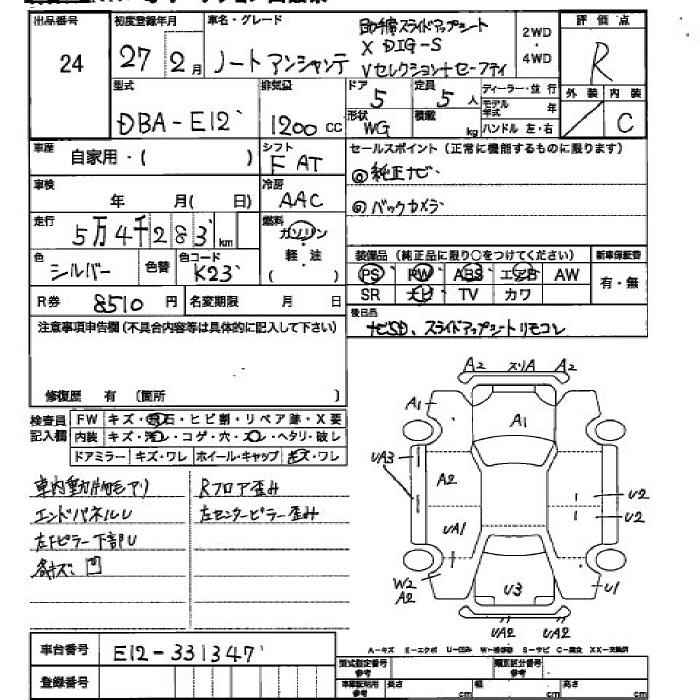 出品番号 初度登録年月 車名・グレード 助手席スライドアップシート 2WD 評価点
24 27 2月 ノート アンシャンテ X DIG-S ・ R
Vセレクション+セーフティ 4WD
型式 排気量 ドア 定員 ディーラー・並行 外装 内装
DBA-E12 1200cc 5 5人 モデル年式 年 C
形状 積載
WG kg ハンドル 左・右
車歴 自家用・( ) シフト セールスポイント(正常に機能するものに限ります)
F AT
車検 年 月( 日) 冷房 ◎純正ナビ
AAC
走行 5万4千283km 燃料 ◎バックカメラ
ガソリン
色 色替 色コード 軽・油 装備品(純正品に限り○をつけてください) 新車保証書
シルバー K23 ( ) PS PW ABS エアB AW 有・無
R券 8510円 名変期限 月 日 SR ナビ TV カワ
注意事項申告欄(不具合内容等は具体的に記入して下さい) 後日品
ナビSD、スライドアップシートリモコン
修復歴 有 (箇所 )
検査員記入欄 FW キズ・飛石・ヒビ割・リペア跡・X要
内装 キズ・汚レ・コゲ・穴・スレ・ヘタリ・破レ
ドアミラー キズ・ワレ ホイール・キャップ キズ・ワレ
エンドパネルU Rフロア歪み
左Fピラー下部U 左センターピラー歪み
各キズ、凹
A2 スリA A2
A1 A1
UA3 A2 U2
UA1 U2
W2 A2 U3 U1
UA2 UA2
A-キズ E-エクボ U-凹み W-補修跡 S-サビ C-腐食 XX-交換済
車台番号 E12-331347
登録番号
型式指定番号 参考 類別区分番号 参考
長さ cm 幅 cm 高さ cm